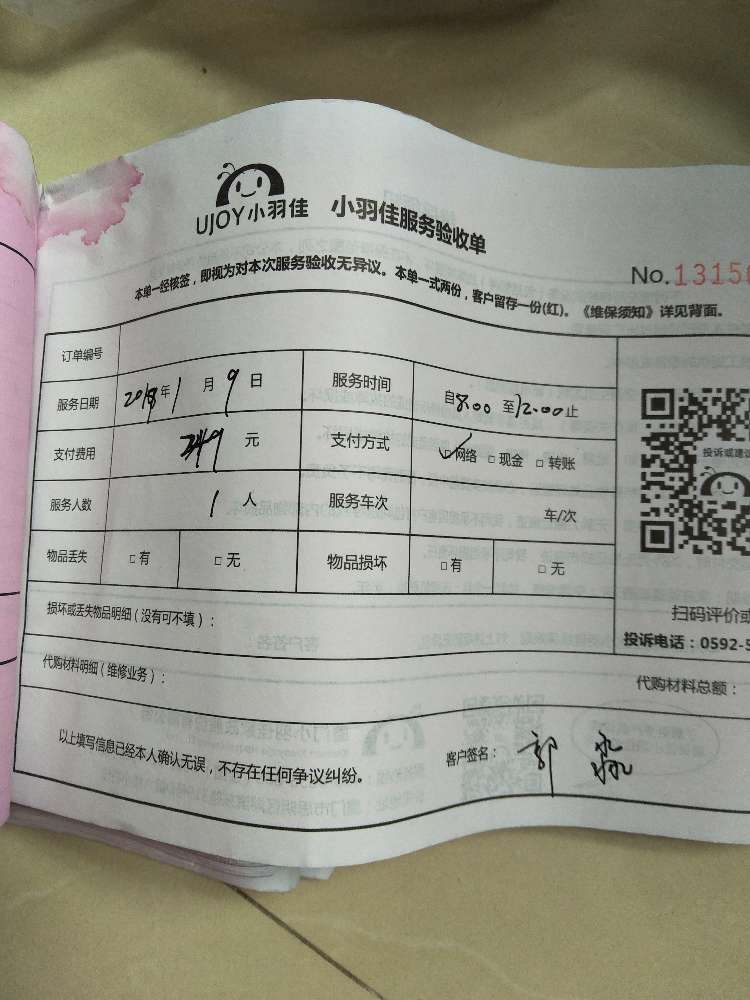 UJOY小羽佳 小羽佳服务验收单
No.1315
本单一经核签，即视为对本次服务验收无异议。本单一式两份，客户留存一份(红)。《维保须知》详见背面。
订单编号
服务日期 2018年1月9日 服务时间 自8:00至12:00止
支付费用 元 支付方式 ☑网络 □现金 □转账
投诉或建议
服务人数 1人 服务车次 车/次
物品丢失 □有 □无 物品损坏 □有 □无
扫码评价或
损坏或丢失物品明细（没有可不填）：
投诉电话：0592-5
代购材料明细（维修业务）： 代购材料总额：
以上填写信息已经本人确认无误，不存在任何争议纠纷。 客户签名：郭